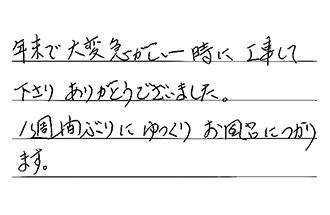 年末で大変急がしい時に工事して
下さり ありがとうございました。
1週間ぶりに ゆっくり お風呂につかり
ます。